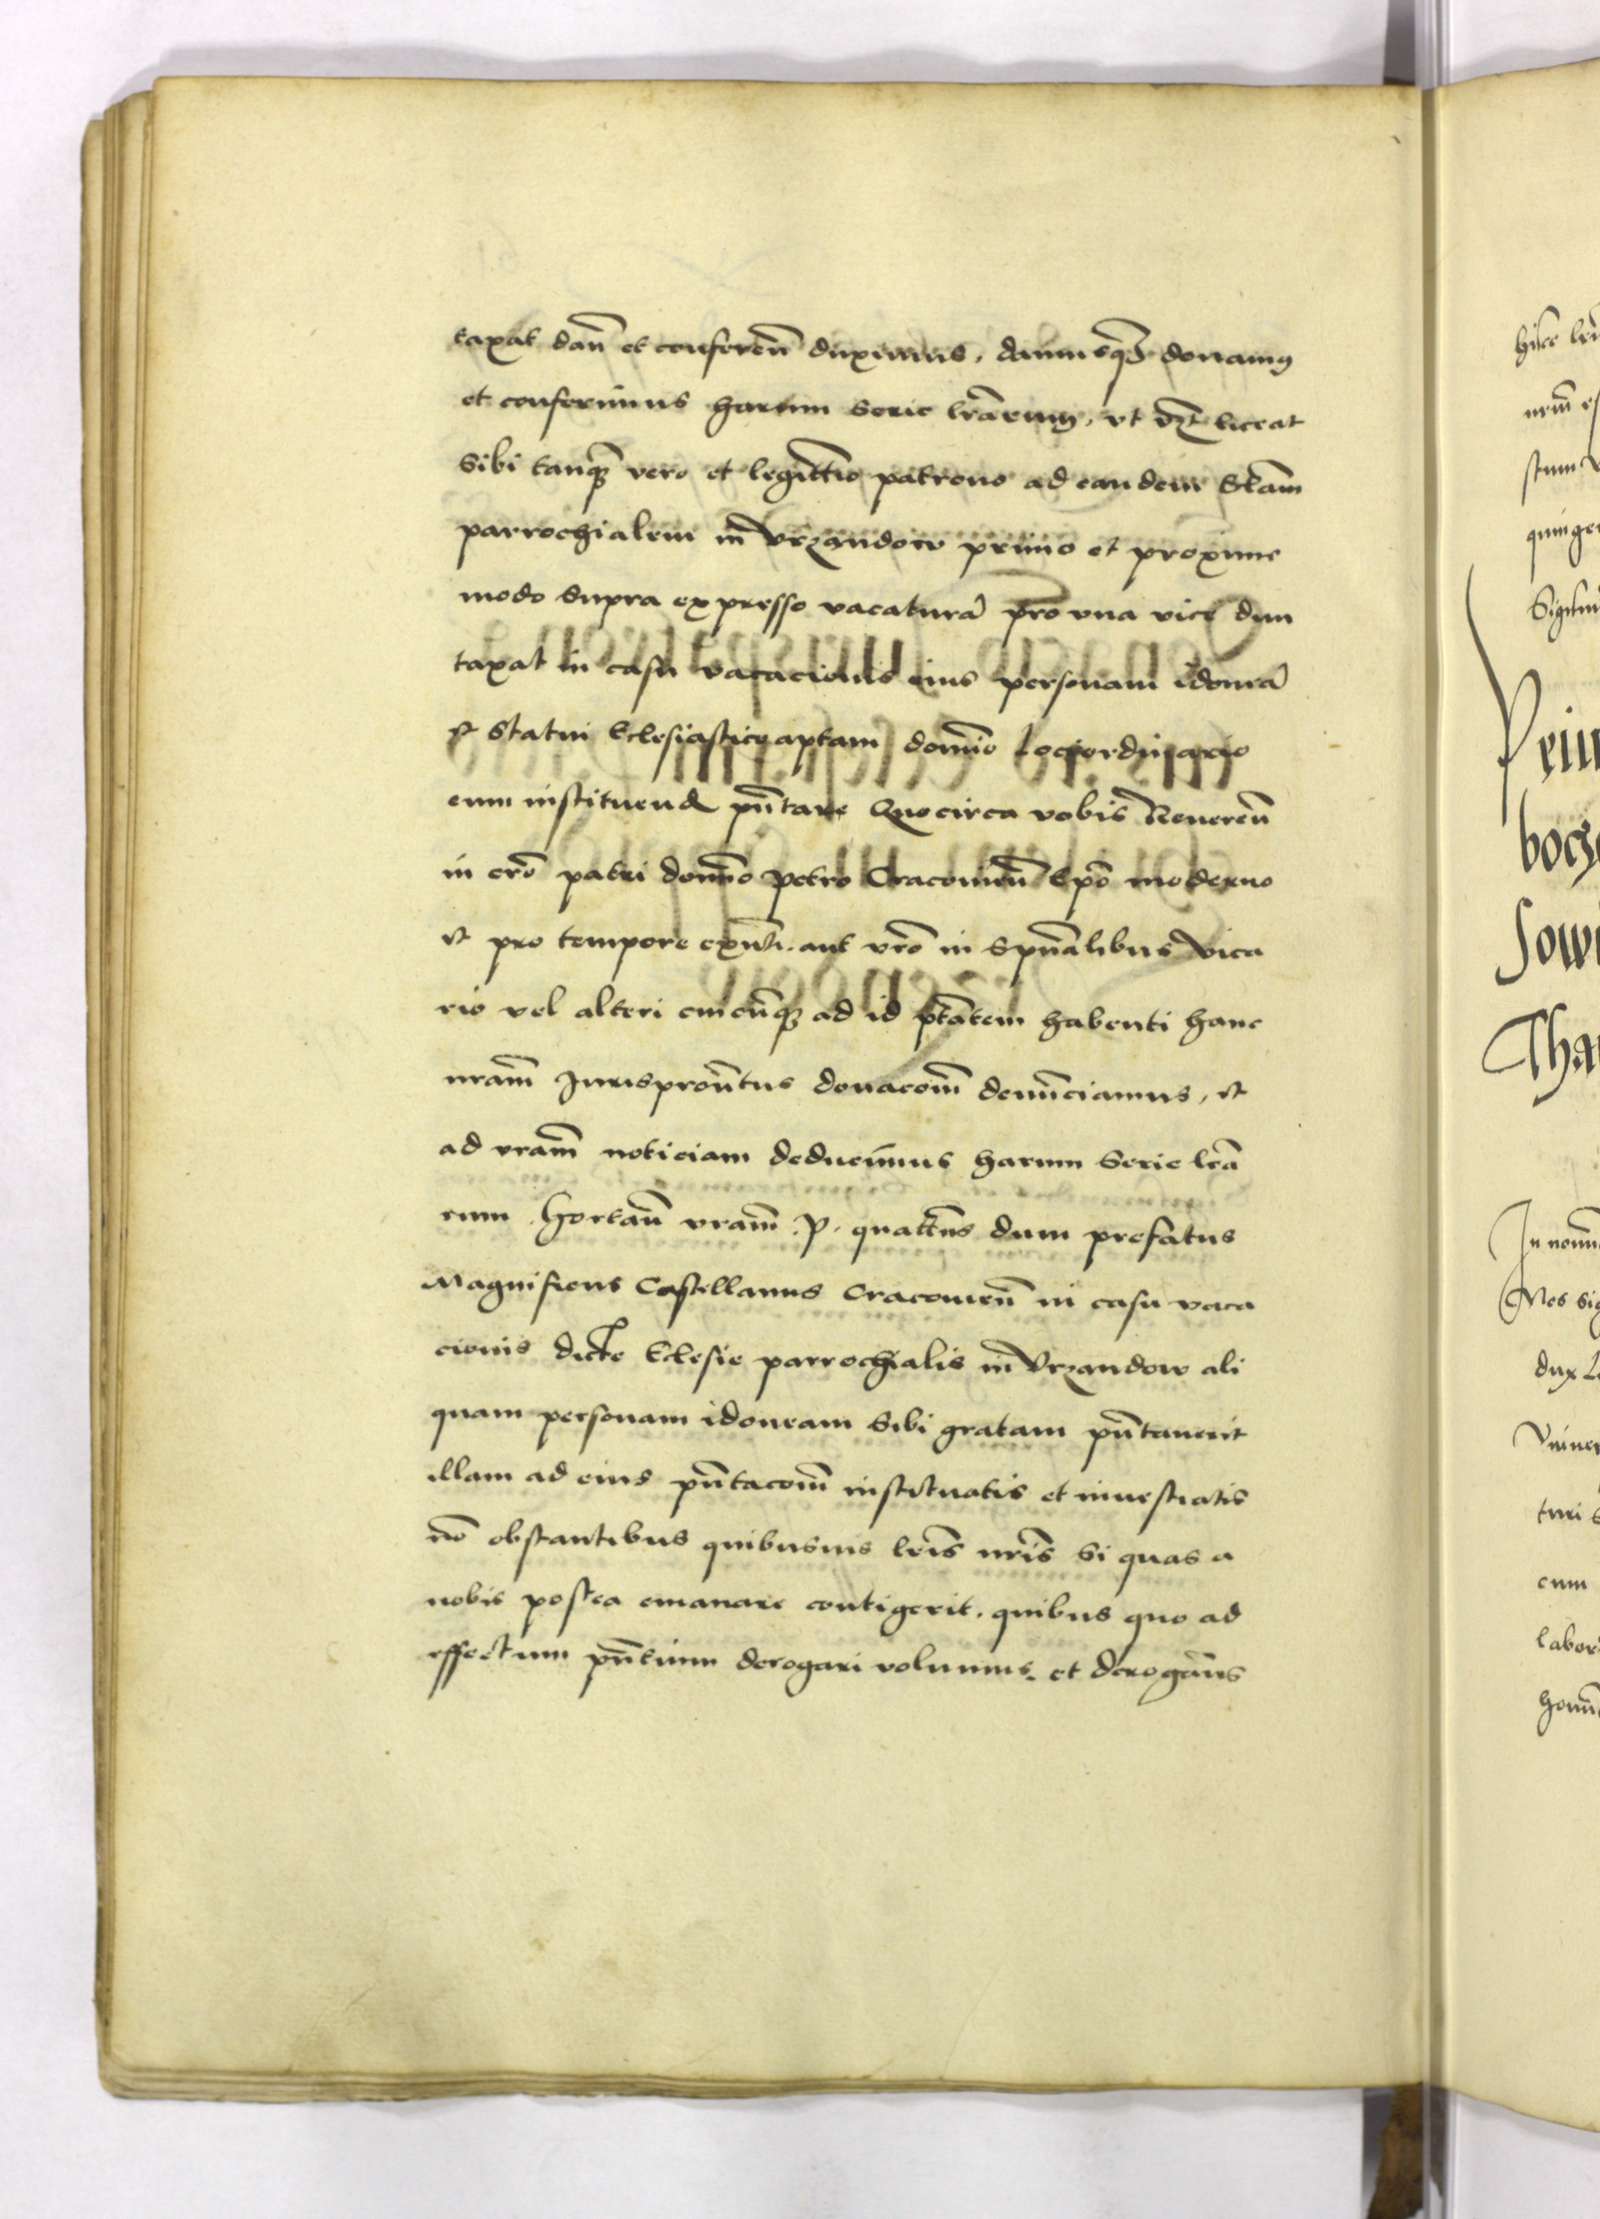 taxat dan̄ et conferen̄ duximus, damusq̃ donamus
et conferimus harum serie lr̄arum, vt vz̄ liceat
sibi tanq̃ vero et legitt̄io patrono ad eandem Eccliam
parrochialem in Vrzandow primo et proxime
modo supra expresso vacaturā pro vna vice dun
taxat in casu vacacionis eius personam idoneā
et statui Eclesiastico aptam domīo loci ordinario
eum instituend pn̄tare Quocirca vobis Reueren̄
in cr̄o patri domīo Petro Cracouien̄ Ep̄o moderno
et pro tempore exn̄ti. aut vr̄o in Spūalibus Vica
rio vel alteri cuicūq̃ ad id ptātem habenti hanc
nr̄am Jurispron̄tus donacōm denūnciamus, et
ad vr̄am noticiam deducimus harum serie lr̄a
rum. Hortan̄ vr̄am .p. quatt̄nus dum prefatus
Magnificus Castellanus Cracouien̄ in casu vaca
cionis dicte Eclesie parrochialis in Vrzandow ali
quam personam idoneam sibi gratam pn̄tauerit
illam ad eius pn̄tacōm instituatis et inuestiatis
nō obstantibus quibusuis lr̄is nr̄is si quas a
nobis postea emanare contigerit. quibus quo ad
effectum pn̄tium derogari volumus. et derogam̄us
Sigism
Prim
bocz
Sowi
Tha
In nomi
Nos Sig
dux L
Vniuer
turi
cum
labor
homi